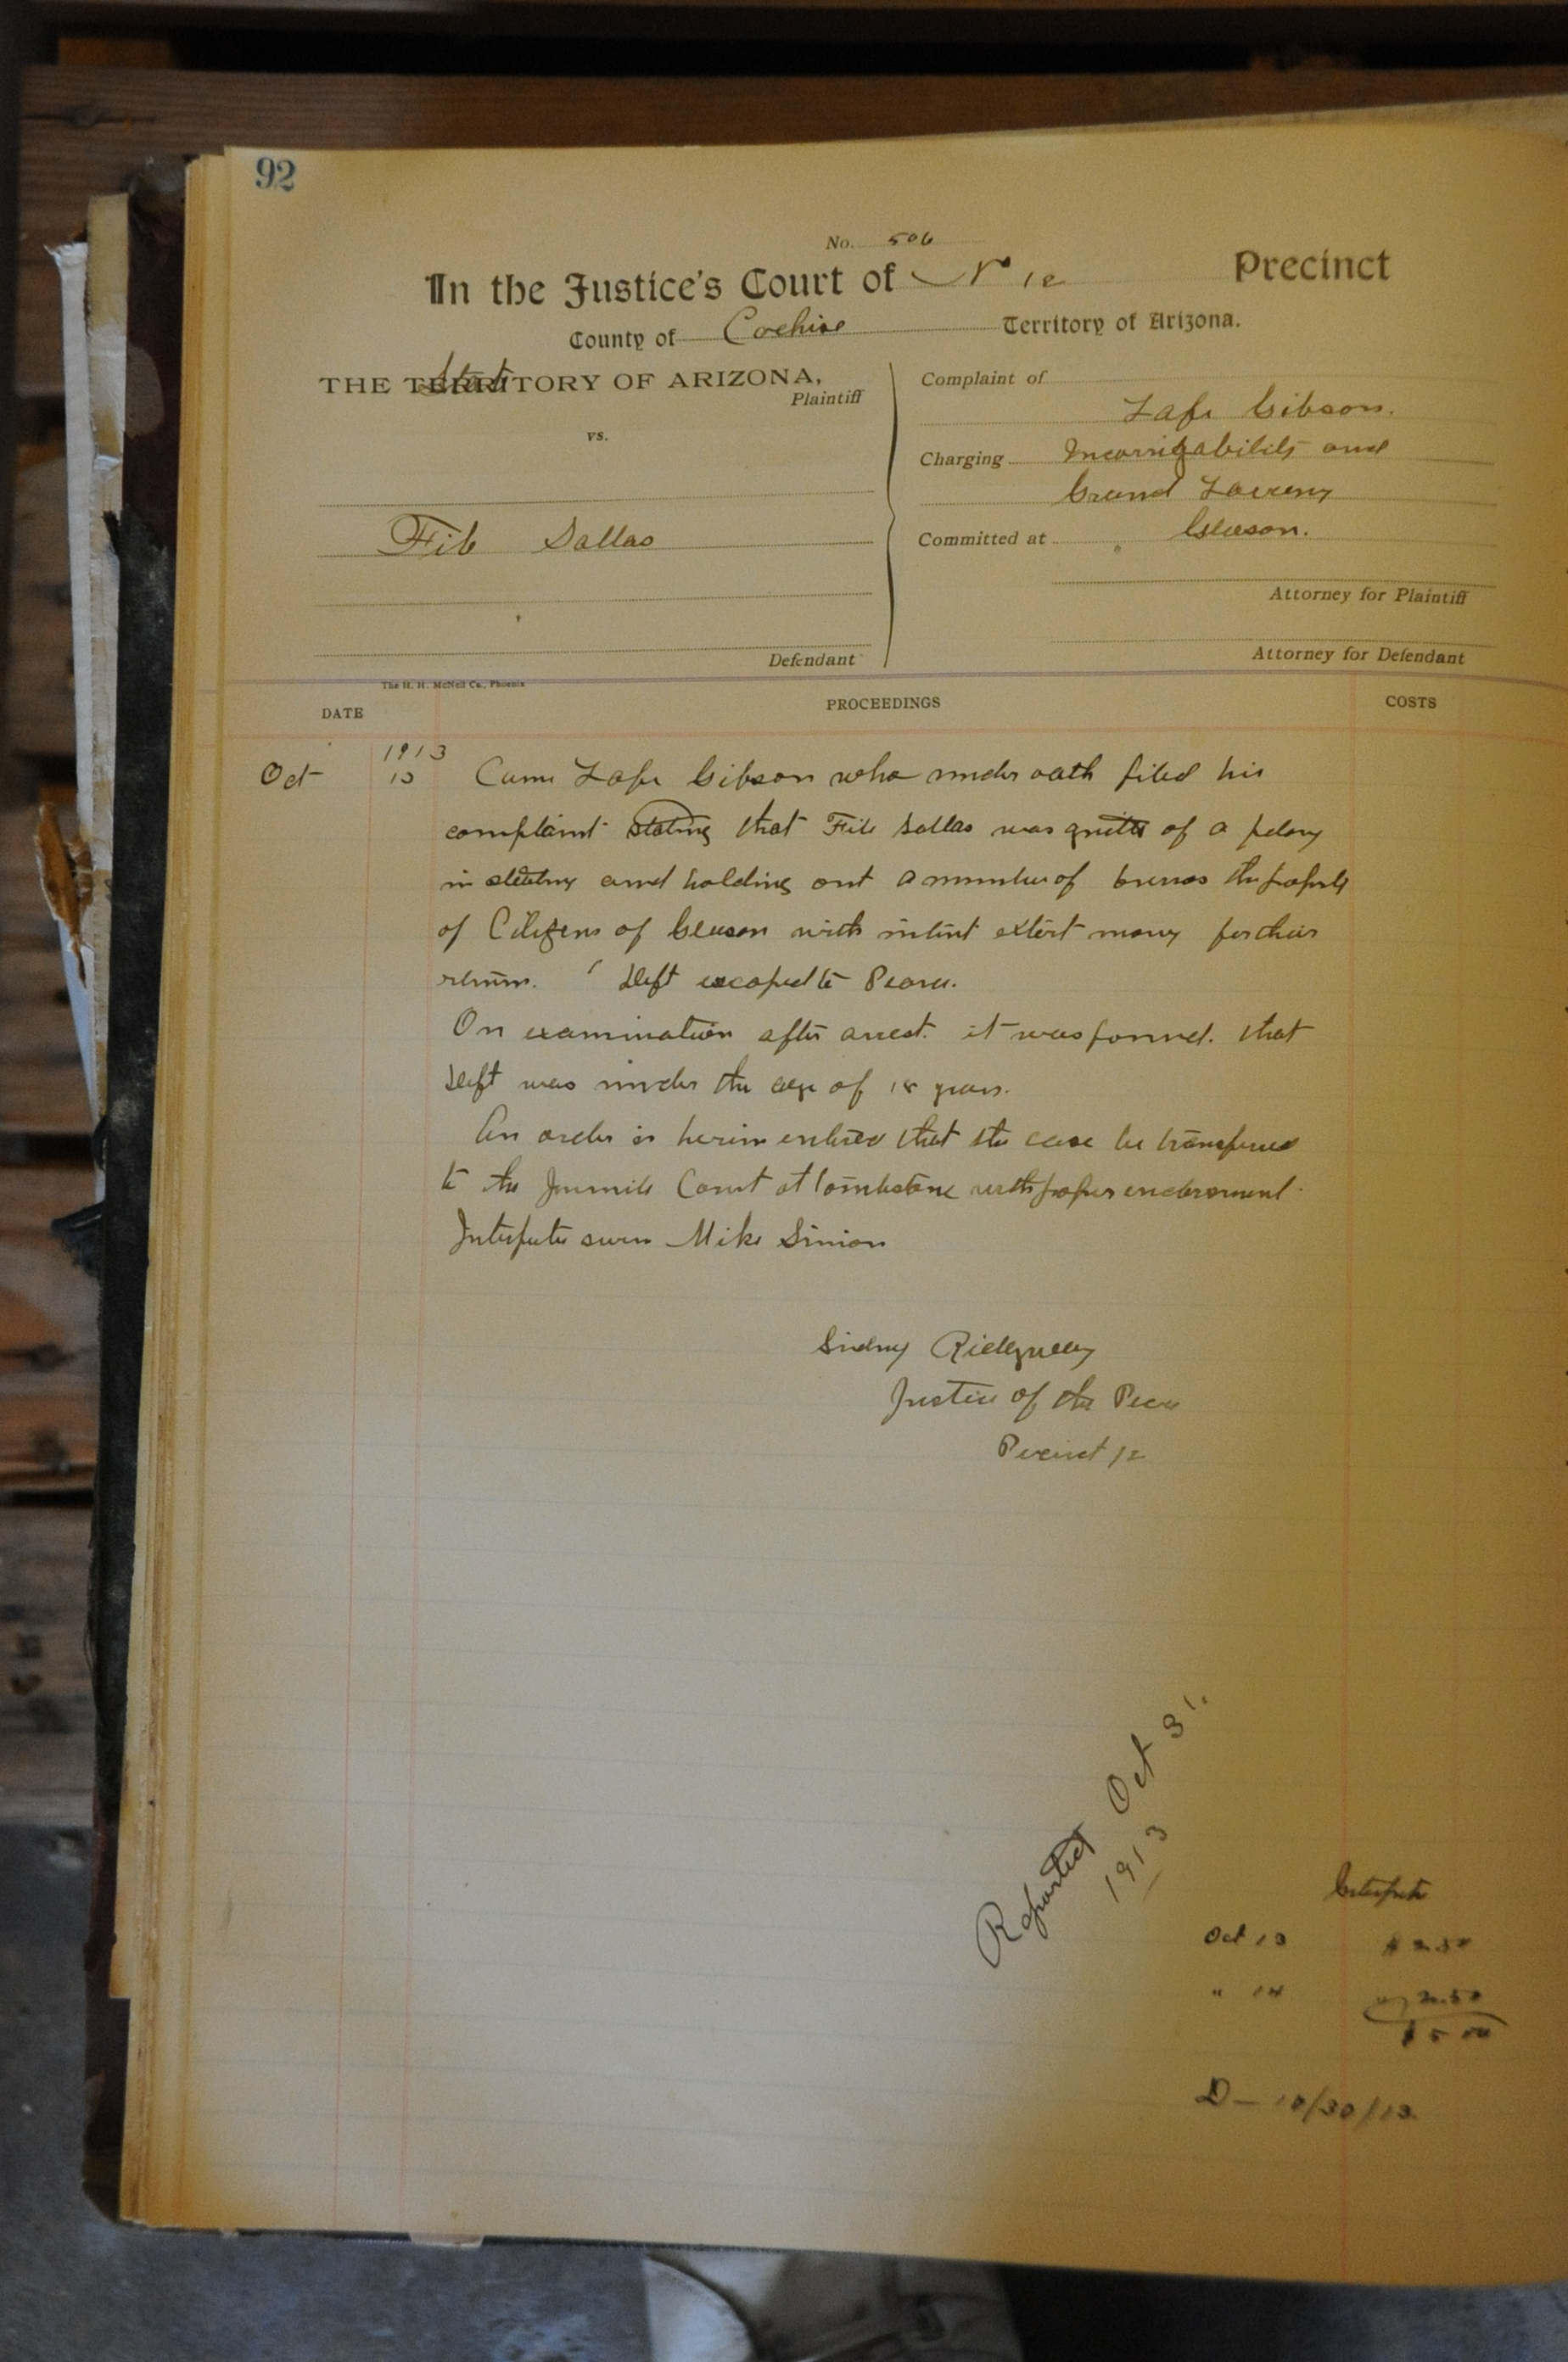 92
No. 506
In the Justice's Court of No 12 Precinct
County of Cochise Territory of Arizona.
THE TERRITORY OF ARIZONA,
State
Plaintiff
vs.
Defendant
Complaint of
Lafe Gibson.
Charging Incorrigability and
Grand Larceny
Committed at Gleeson.
Attorney for Plaintiff
Attorney for Defendant
The H. H. McNeil Co., Phoenix
DATE PROCEEDINGS COSTS
1913
Oct Came Lafe Gibson who under oath filed his
complaint stating that Dallas was guilty of a felony
in stealing and holding out a number of burros the property
of Citizens of Gleeson with intent extort money for their
return. Deft escaped to Pearce.
On examination after arrest. it was found. that
Deft was under the age of 18 years.
An order is herein entered that the case be transferred
to the Juvenile Court at Tombstone with proper endorsement.
Interpeter sworn Mike Simon
Sidney Ridgway
Justice of the Peace
Percinct 12
Reported Oct 31.
1913
Interpeter
Oct 13 $ 2.50
" 14 2.50
$ 5 00
D - 10/30/13.